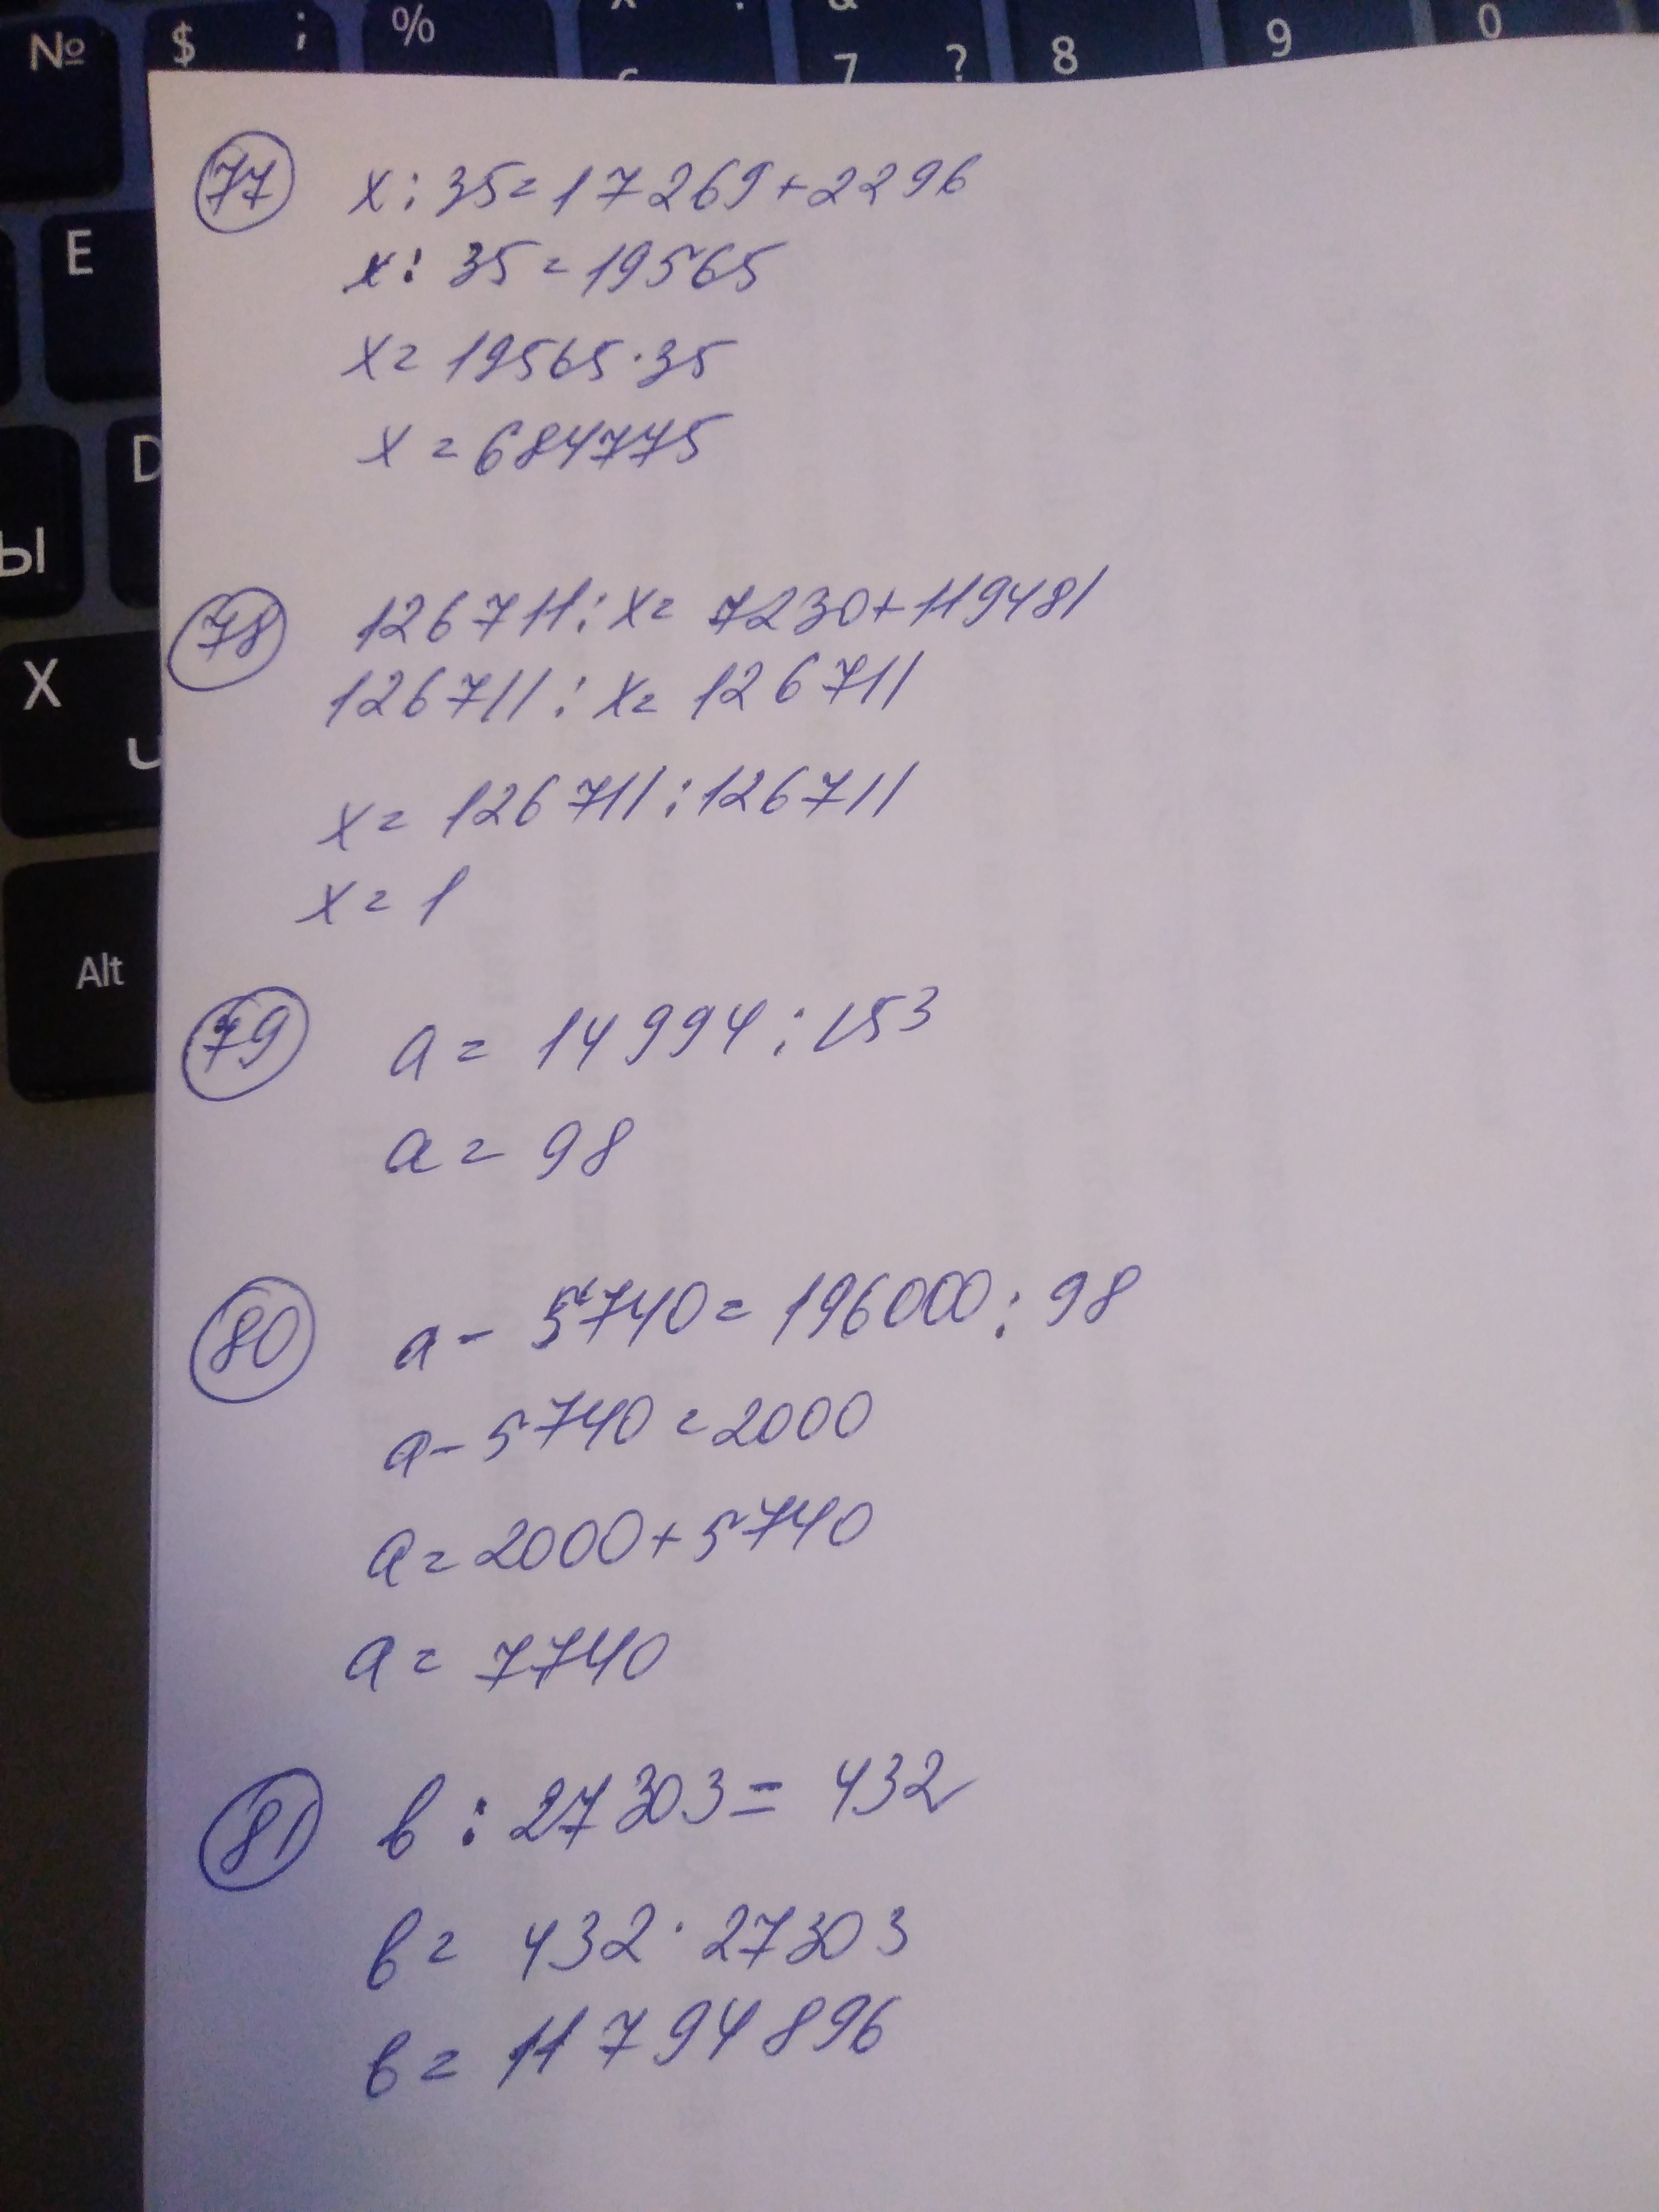 № $ ; % & 7 ? 8 9 0
E
D
Ы
X
Ч
Alt
77 x : 35 = 17269 + 2296
x : 35 = 19565
x = 19565 · 35
x = 684775
78 126711 : x = 7230 + 119481
126711 : x = 126711
x = 126711 : 126711
x = 1
79 a = 14994 : 153
a = 98
80 a - 5740 = 196000 : 98
a - 5740 = 2000
a = 2000 + 5740
a = 7740
81 b : 27303 = 432
b = 432 · 27303
b = 11794896